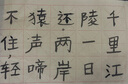 千里江
陵一日
还两岸
猿声啼
不住轻